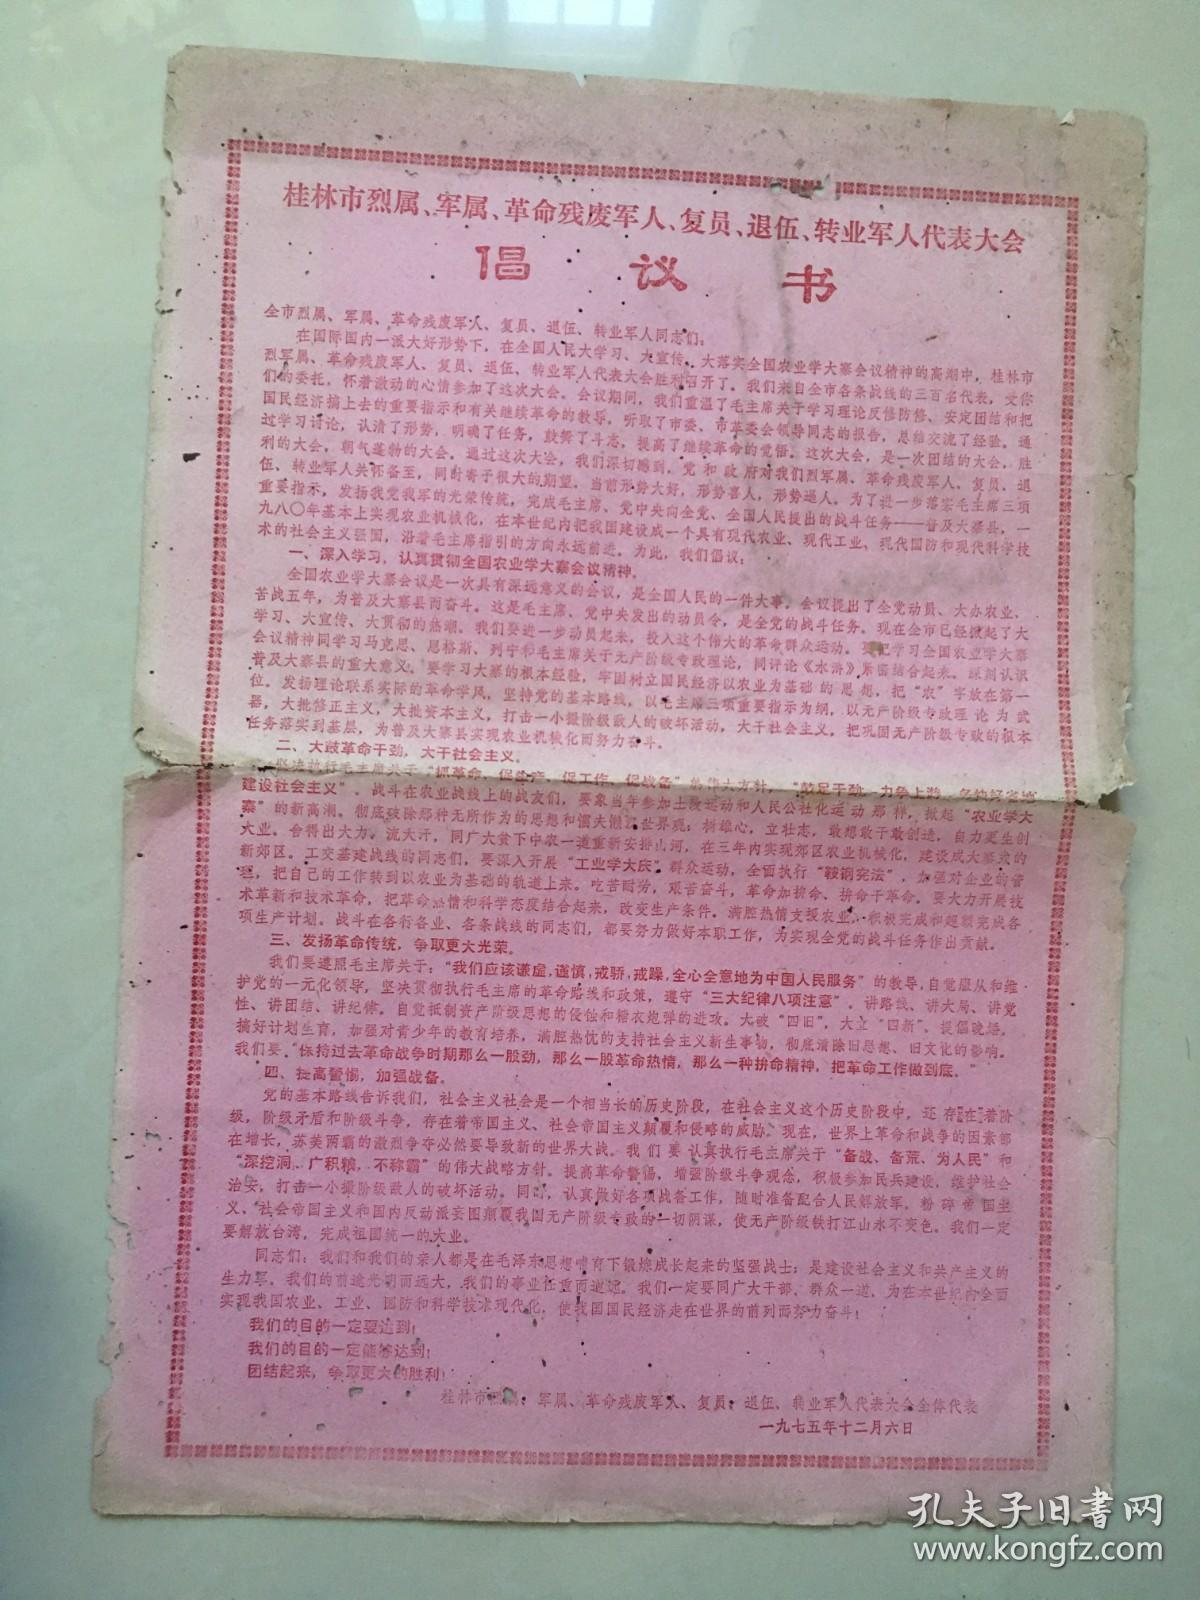 桂林市烈属、军属、革命残废军人、复员、退伍、转业军人代表大会
倡议书
全市烈属、军属、革命残废军人、复员、退伍、转业军人同志们:
在国际国内一派大好形势下，在全国人民大学习、大宣传、大落实全国农业学大寨会议精神的高潮中，桂林市
烈军属、革命残废军人、复员、退伍、转业军人代表大会胜利召开了。我们来自全市各条战线的三百名代表，受你
们的委托，怀着激动的心情参加了这次大会。会议期间，我们重温了毛主席关于学习理论反修防修、安定团结和把
国民经济搞上去的重要指示和有关继续革命的教导，听取了市委、市革委会领导同志的报告，总结交流了经验。通
过学习讨论，认清了形势，明确了任务，鼓舞了斗志，提高了继续革命的觉悟。这次大会，是一次团结的大会，胜
利的大会，朝气蓬勃的大会。通过这次大会，我们深切感到，党和政府对我们烈军属、革命残废军人、复员、退
伍、转业军人关怀备至，同时寄于很大的期望。当前形势大好，形势喜人，形势逼人。为了进一步落实毛主席三项
重要指示，发扬我党我军的光荣传统，完成毛主席、党中央向全党、全国人民提出的战斗任务——普及大寨县，一
九八〇年基本上实现农业机械化，在本世纪内把我国建设成一个具有现代农业、现代工业、现代国防和现代科学技
术的社会主义强国，沿着毛主席指引的方向永远前进。为此，我们倡议:
一、深入学习，认真贯彻全国农业学大寨会议精神。
全国农业学大寨会议是一次具有深远意义的会议，是全国人民的一件大事。会议提出了全党动员、大办农业、
苦战五年，为普及大寨县而奋斗。这是毛主席、党中央发出的动员令，是全党的战斗任务。现在全市已经掀起了大
学习、大宣传、大贯彻的热潮。我们要进一步动员起来，投入这个伟大的革命群众运动。要把学习全国农业学大寨
会议精神同学习马克思、恩格斯、列宁和毛主席关于无产阶级专政理论，同评论《水浒》紧密结合起来。深刻认识
普及大寨县的重大意义。要学习大寨的根本经验，牢固树立国民经济以农业为基础的思想，把“农”字放在第一
位。发扬理论联系实际的革命学风，坚持党的基本路线，以毛主席三项重要指示为纲，以无产阶级专政理论为武
器，大批修正主义，大批资本主义，打击一小撮阶级敌人的破坏活动，大干社会主义，把巩固无产阶级专政的根本
任务落实到基层，为普及大寨县实现农业机械化而努力奋斗。
二、大鼓革命干劲，大干社会主义。
坚决执行毛主席关于“抓革命，促生产，促工作，促战备”的伟大方针，“鼓足干劲，力争上游，多快好省地
建设社会主义”。战斗在农业战线上的战友们，要象当年参加土改运动和人民公社化运动那样，掀起“农业学大
寨”的新高潮。彻底破除那种无所作为的思想和懦夫懒汉世界观；树雄心，立壮志，敢想敢干敢创造，自力更生创
大业。舍得出大力，流大汗，同广大贫下中农一道重新安排山河，在三年内实现郊区农业机械化，建设成大寨式的
新郊区。工交基建战线的同志们，要深入开展“工业学大庆”群众运动，全面执行“鞍钢宪法”，加强对企业的管
理，把自己的工作转到以农业为基础的轨道上来。吃苦耐劳，艰苦奋斗，革命加拚命、拚命干革命。要大力开展技
术革新和技术革命，把革命热情和科学态度结合起来，改变生产条件。满腔热情支援农业，积极完成和超额完成各
项生产计划。战斗在各行各业、各条战线的同志们，都要努力做好本职工作，为实现全党的战斗任务作出贡献。
三、发扬革命传统，争取更大光荣。
我们要遵照毛主席关于:“我们应该谦虚，谨慎，戒骄，戒躁，全心全意地为中国人民服务”的教导，自觉服从和维
护党的一元化领导，坚决贯彻执行毛主席的革命路线和政策，遵守“三大纪律八项注意”。讲路线、讲大局、讲党
性、讲团结、讲纪律。自觉抵制资产阶级思想的侵蚀和糖衣炮弹的进攻。大破“四旧”，大立“四新”。提倡晚婚，
搞好计划生育，加强对青少年的教育培养，满腔热忱的支持社会主义新生事物，彻底清除旧思想、旧文化的影响。
我们要“保持过去革命战争时期那么一股劲，那么一股革命热情，那么一种拚命精神，把革命工作做到底。”
四、提高警惕，加强战备。
党的基本路线告诉我们，社会主义社会是一个相当长的历史阶段，在社会主义这个历史阶段中，还存在着阶
级，阶级矛盾和阶级斗争，存在着帝国主义、社会帝国主义颠覆和侵略的威胁。现在，世界上革命和战争的因素都
在增长，苏美两霸的激烈争夺必然要导致新的世界大战。我们要认真执行毛主席关于“备战、备荒、为人民”和
“深挖洞、广积粮，不称霸”的伟大战略方针。提高革命警惕，增强阶级斗争观念，积极参加民兵建设，维护社会
治安，打击一小撮阶级敌人的破坏活动。同时，认真做好各项战备工作，随时准备配合人民解放军，粉碎帝国主
义、社会帝国主义和国内反动派妄图颠覆我国无产阶级专政的一切阴谋，使无产阶级铁打江山永不变色。我们一定
要解放台湾，完成祖国统一的大业。
同志们: 我们和我们的亲人都是在毛泽东思想哺育下锻炼成长起来的坚强战士；是建设社会主义和共产主义的
生力军。我们的前途光明而远大，我们的事业任重而道远。我们一定要同广大干部、群众一道，为在本世纪内全面
实现我国农业、工业、国防和科学技术现代化，使我国国民经济走在世界的前列而努力奋斗！
我们的目的一定要达到！
我们的目的一定能够达到！
团结起来，争取更大的胜利！
桂林市烈属、军属、革命残废军人、复员、退伍、转业军人代表大会全体代表
一九七五年十二月六日
孔夫子旧书网
www.kongfz.com